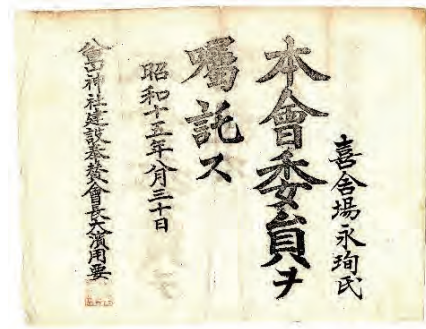 喜舎場永珣氏
本會委員ヲ
囑託ス
昭和十五年八月三十日
八重山神社建設奉賛會長大濱用要